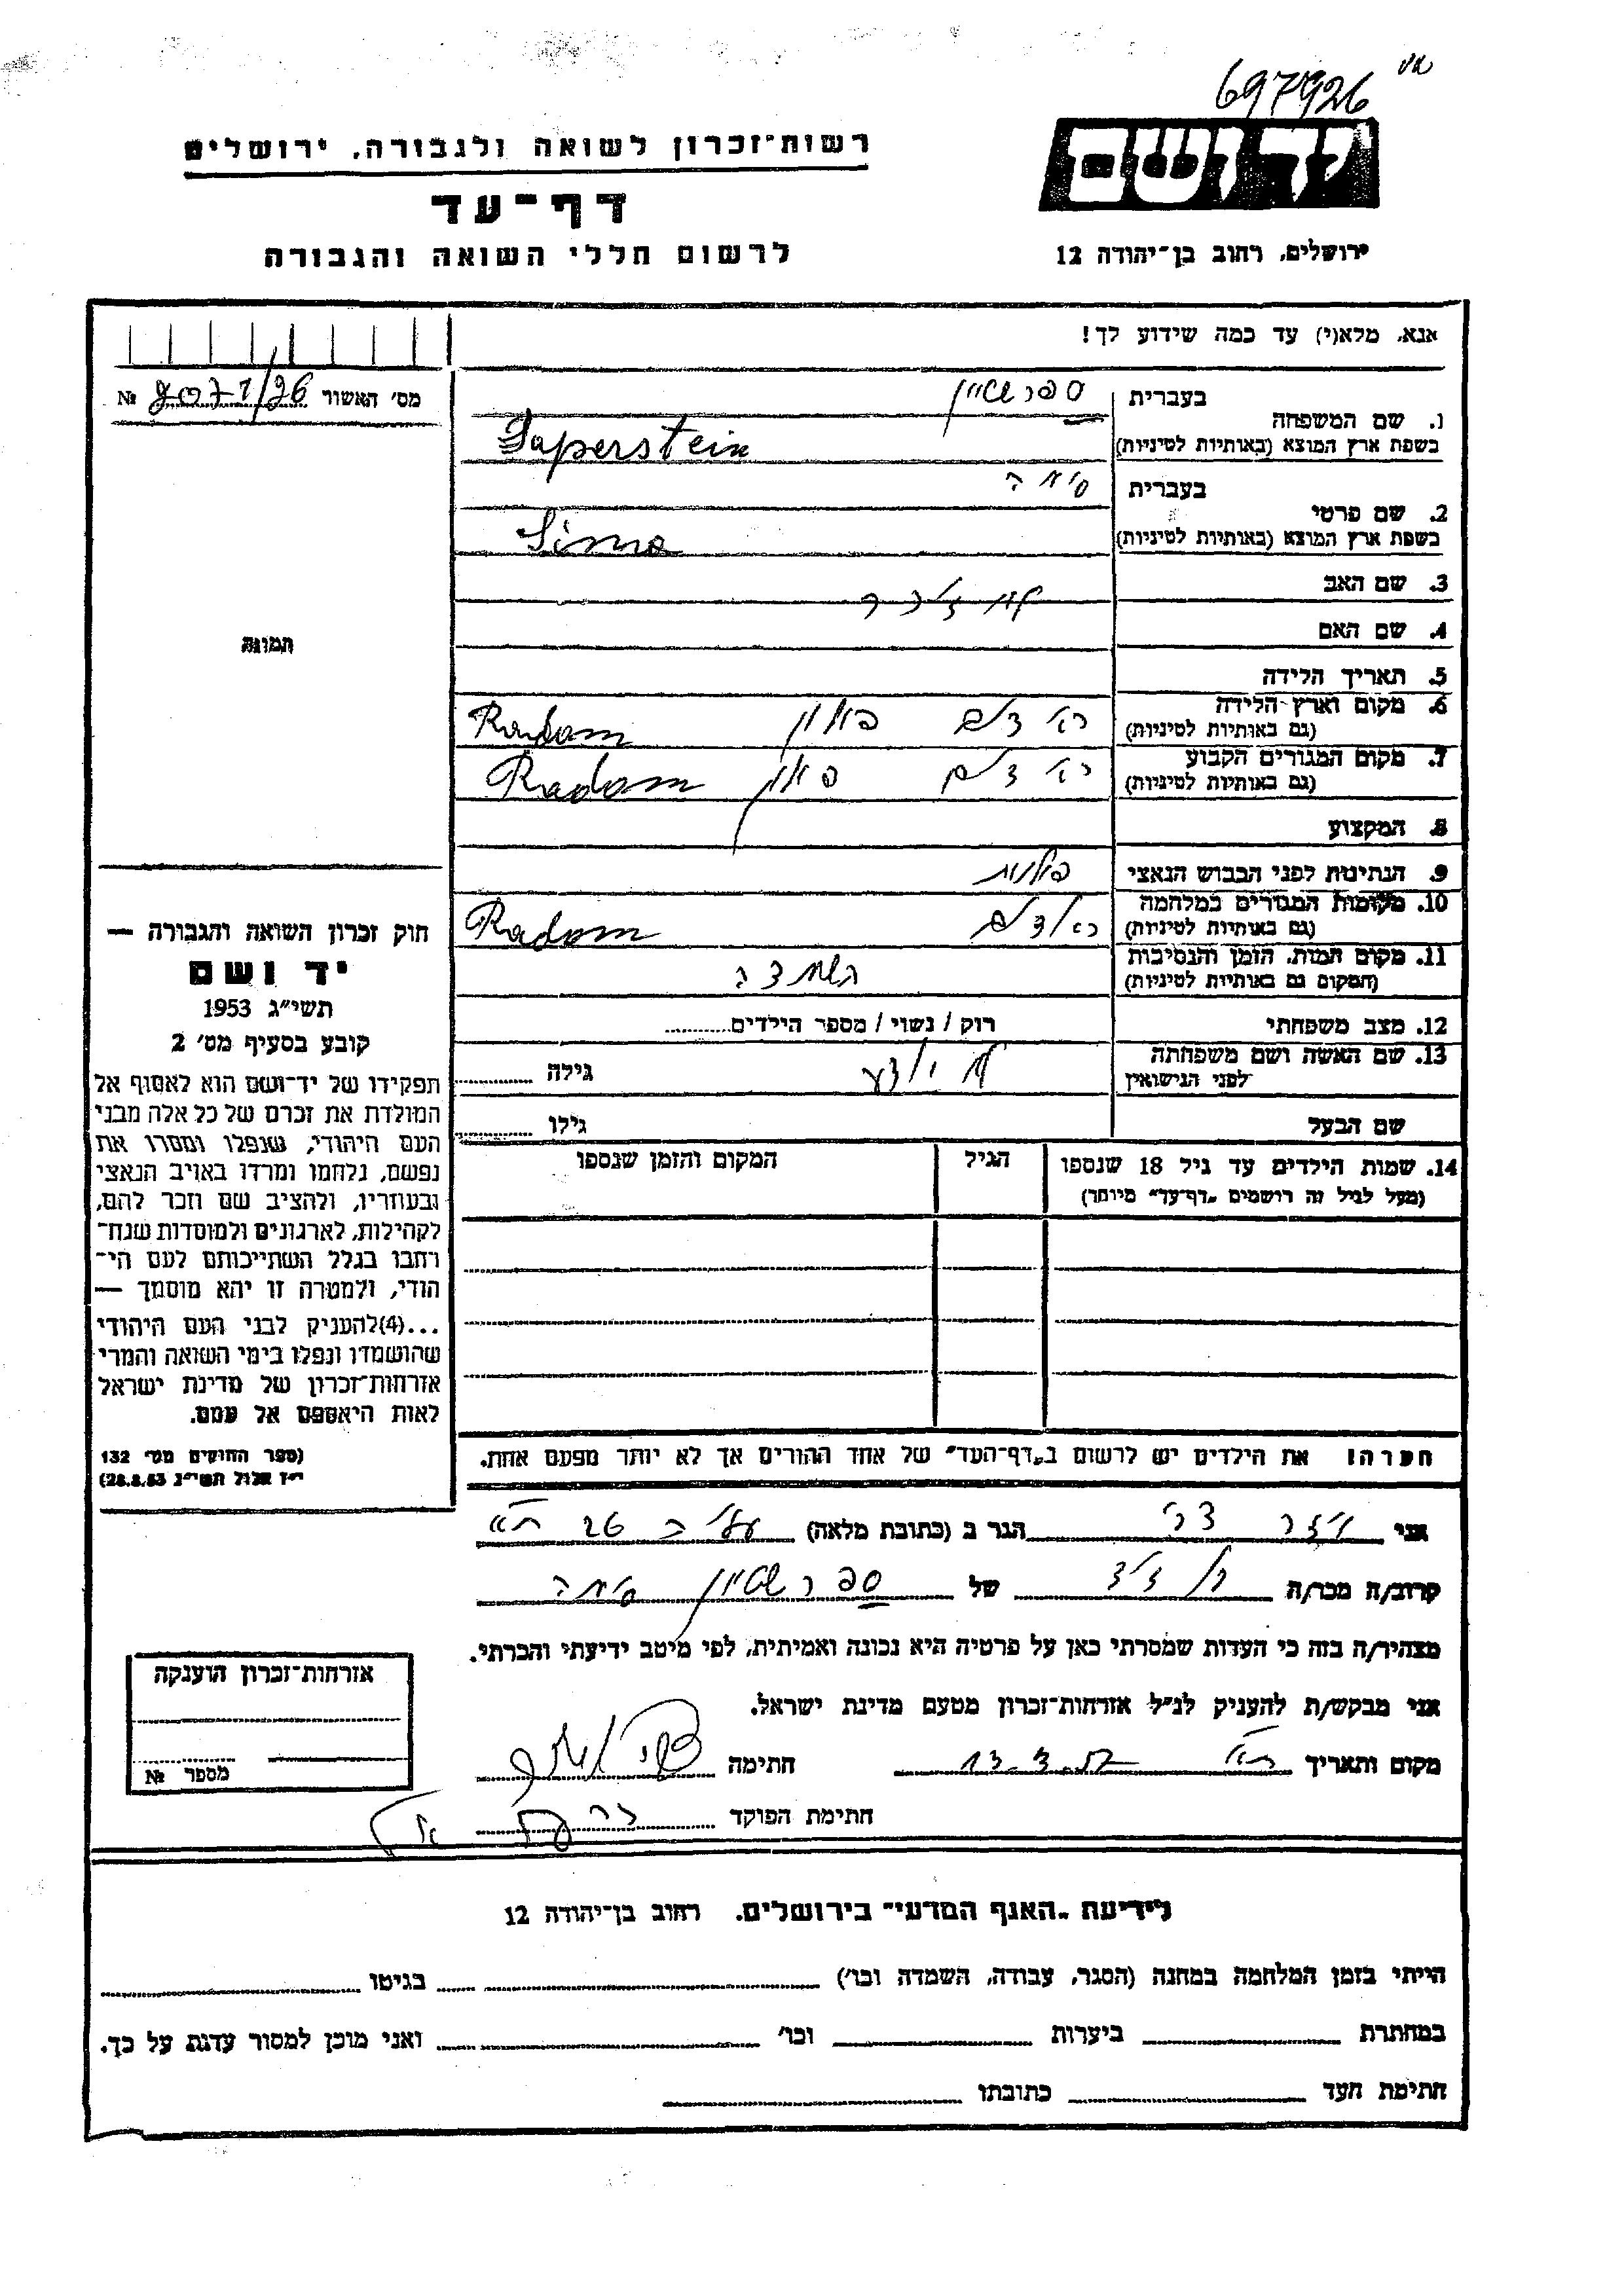 697926
רשות־זכרון לשואה ולגבורה, ירושלים
יד ושם
דף־עד
לרשום חללי השואה והגבורה
ירושלים, רחוב בן־יהודה 12
אנא, מלא(י) עד כמה שידוע לך!
מס׳ האשור №
1. שם המשפחה בעברית ספרשטיין
בשפת ארץ המוצא (באותיות לטיניות) Saperstein
2. שם פרטי בעברית סימה
בשפת ארץ המוצא (באותיות לטיניות) Sima
3. שם האב לא זוכר
4. שם האם
5. תאריך הלידה
6. מקום וארץ הלידה (גם באותיות לטיניות) פולין Radom
7. מקום המגורים הקבוע (גם באותיות לטיניות) פולין Radom
8. המקצוע
9. הנתינות לפני הכבוש הנאצי פולנית
10. מקומות המגורים במלחמה (גם באותיות לטיניות) ראדום Radom
11. מקום המות, הזמן והנסיבות (המקום גם באותיות לטיניות) השמדה
12. מצב משפחתי רוק / נשוי / מספר הילדים
13. שם האשה ושם משפחתה לפני הנישואין לא יודע גילה
שם הבעל גילו
14. שמות הילדים עד גיל 18 שנספו (מעל לגיל זה רושמים „דף־עד״ מיוחד) הגיל המקום והזמן שנספו
הערה! את הילדים יש לרשום ב„דף־העד״ של אחד ההורים אך לא יותר מפעם אחת.
תמונה
חוק זכרון השואה והגבורה —
יד ושם
תשי״ג 1953
קובע בסעיף מס׳ 2
תפקידו של יד־ושם הוא לאסוף אל
המולדת את זכרם של כל אלה מבני
העם היהודי, שנפלו ומסרו את
נפשם, נלחמו ומרדו באויב הנאצי
ובעוזריו, ולהציב שם וזכר להם,
לקהילות, לארגונים ולמוסדות שנח־
רבו בגלל השתייכותם לעם הי־
הודי, ולמטרה זו יהא מוסמך —
...(4)להעניק לבני העם היהודי
שהושמדו ונפלו בימי השואה והמרי
אזרחות־זכרון של מדינת ישראל
לאות היאספם אל עמם.
(ספר החוקים מס׳ 132
י״ז אלול תשי״ג 28.8.53)
אני הגר ב (כתובת מלאה) 26
קרוב/ה מכר/ה של ספרשטיין סימה
מצהיר/ה בזה כי העדות שמסרתי כאן על פרטיה היא נכונה ואמיתית, לפי מיטב ידיעתי והכרתי.
אני מבקש/ת להעניק לנ״ל אזרחות־זכרון מטעם מדינת ישראל.
מקום ותאריך חתימה
חתימת הפוקד
אזרחות־זכרון הוענקה
מספר №
לידיעת „האגף המדעי״ בירושלים, רחוב בן־יהודה 12
הייתי בזמן המלחמה במחנה (הסגר, עבודה, השמדה וכו׳) בגיטו
במחתרת ביערות וכו׳ ואני מוכן למסור עדות על כך.
חתימת העד כתובתו